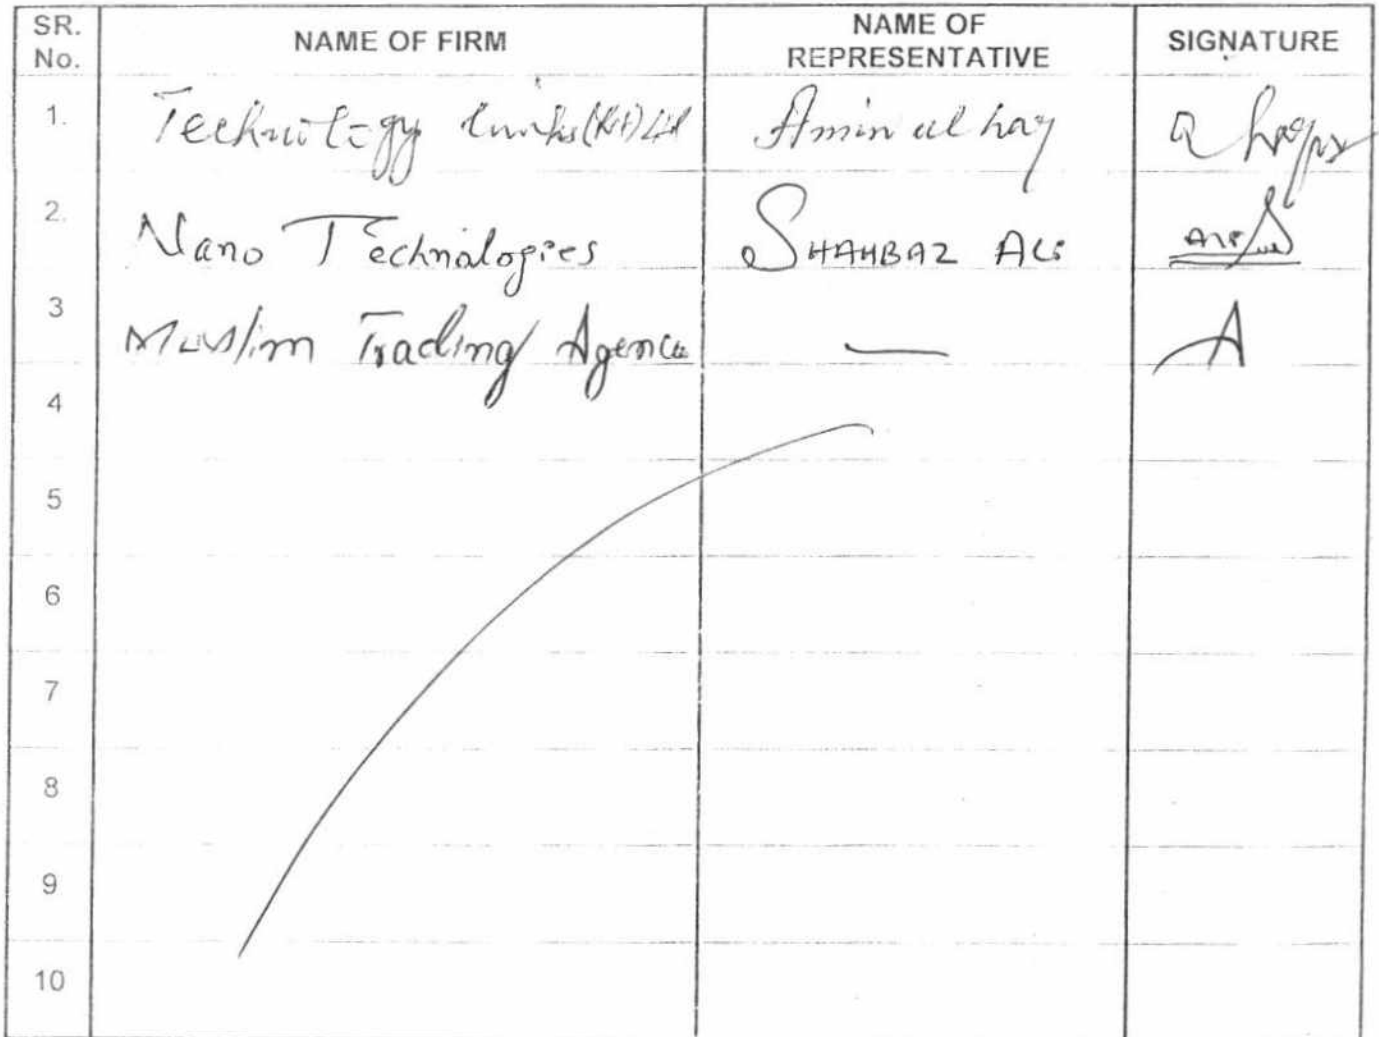 SR. No. NAME OF FIRM NAME OF REPRESENTATIVE SIGNATURE
1. Technology Links (Pvt) Ltd Amin ul hay
2. Nano Technologies SHAHBAZ ALi
3 Muslim Trading Agency — A
4
5
6
7
8
9
10